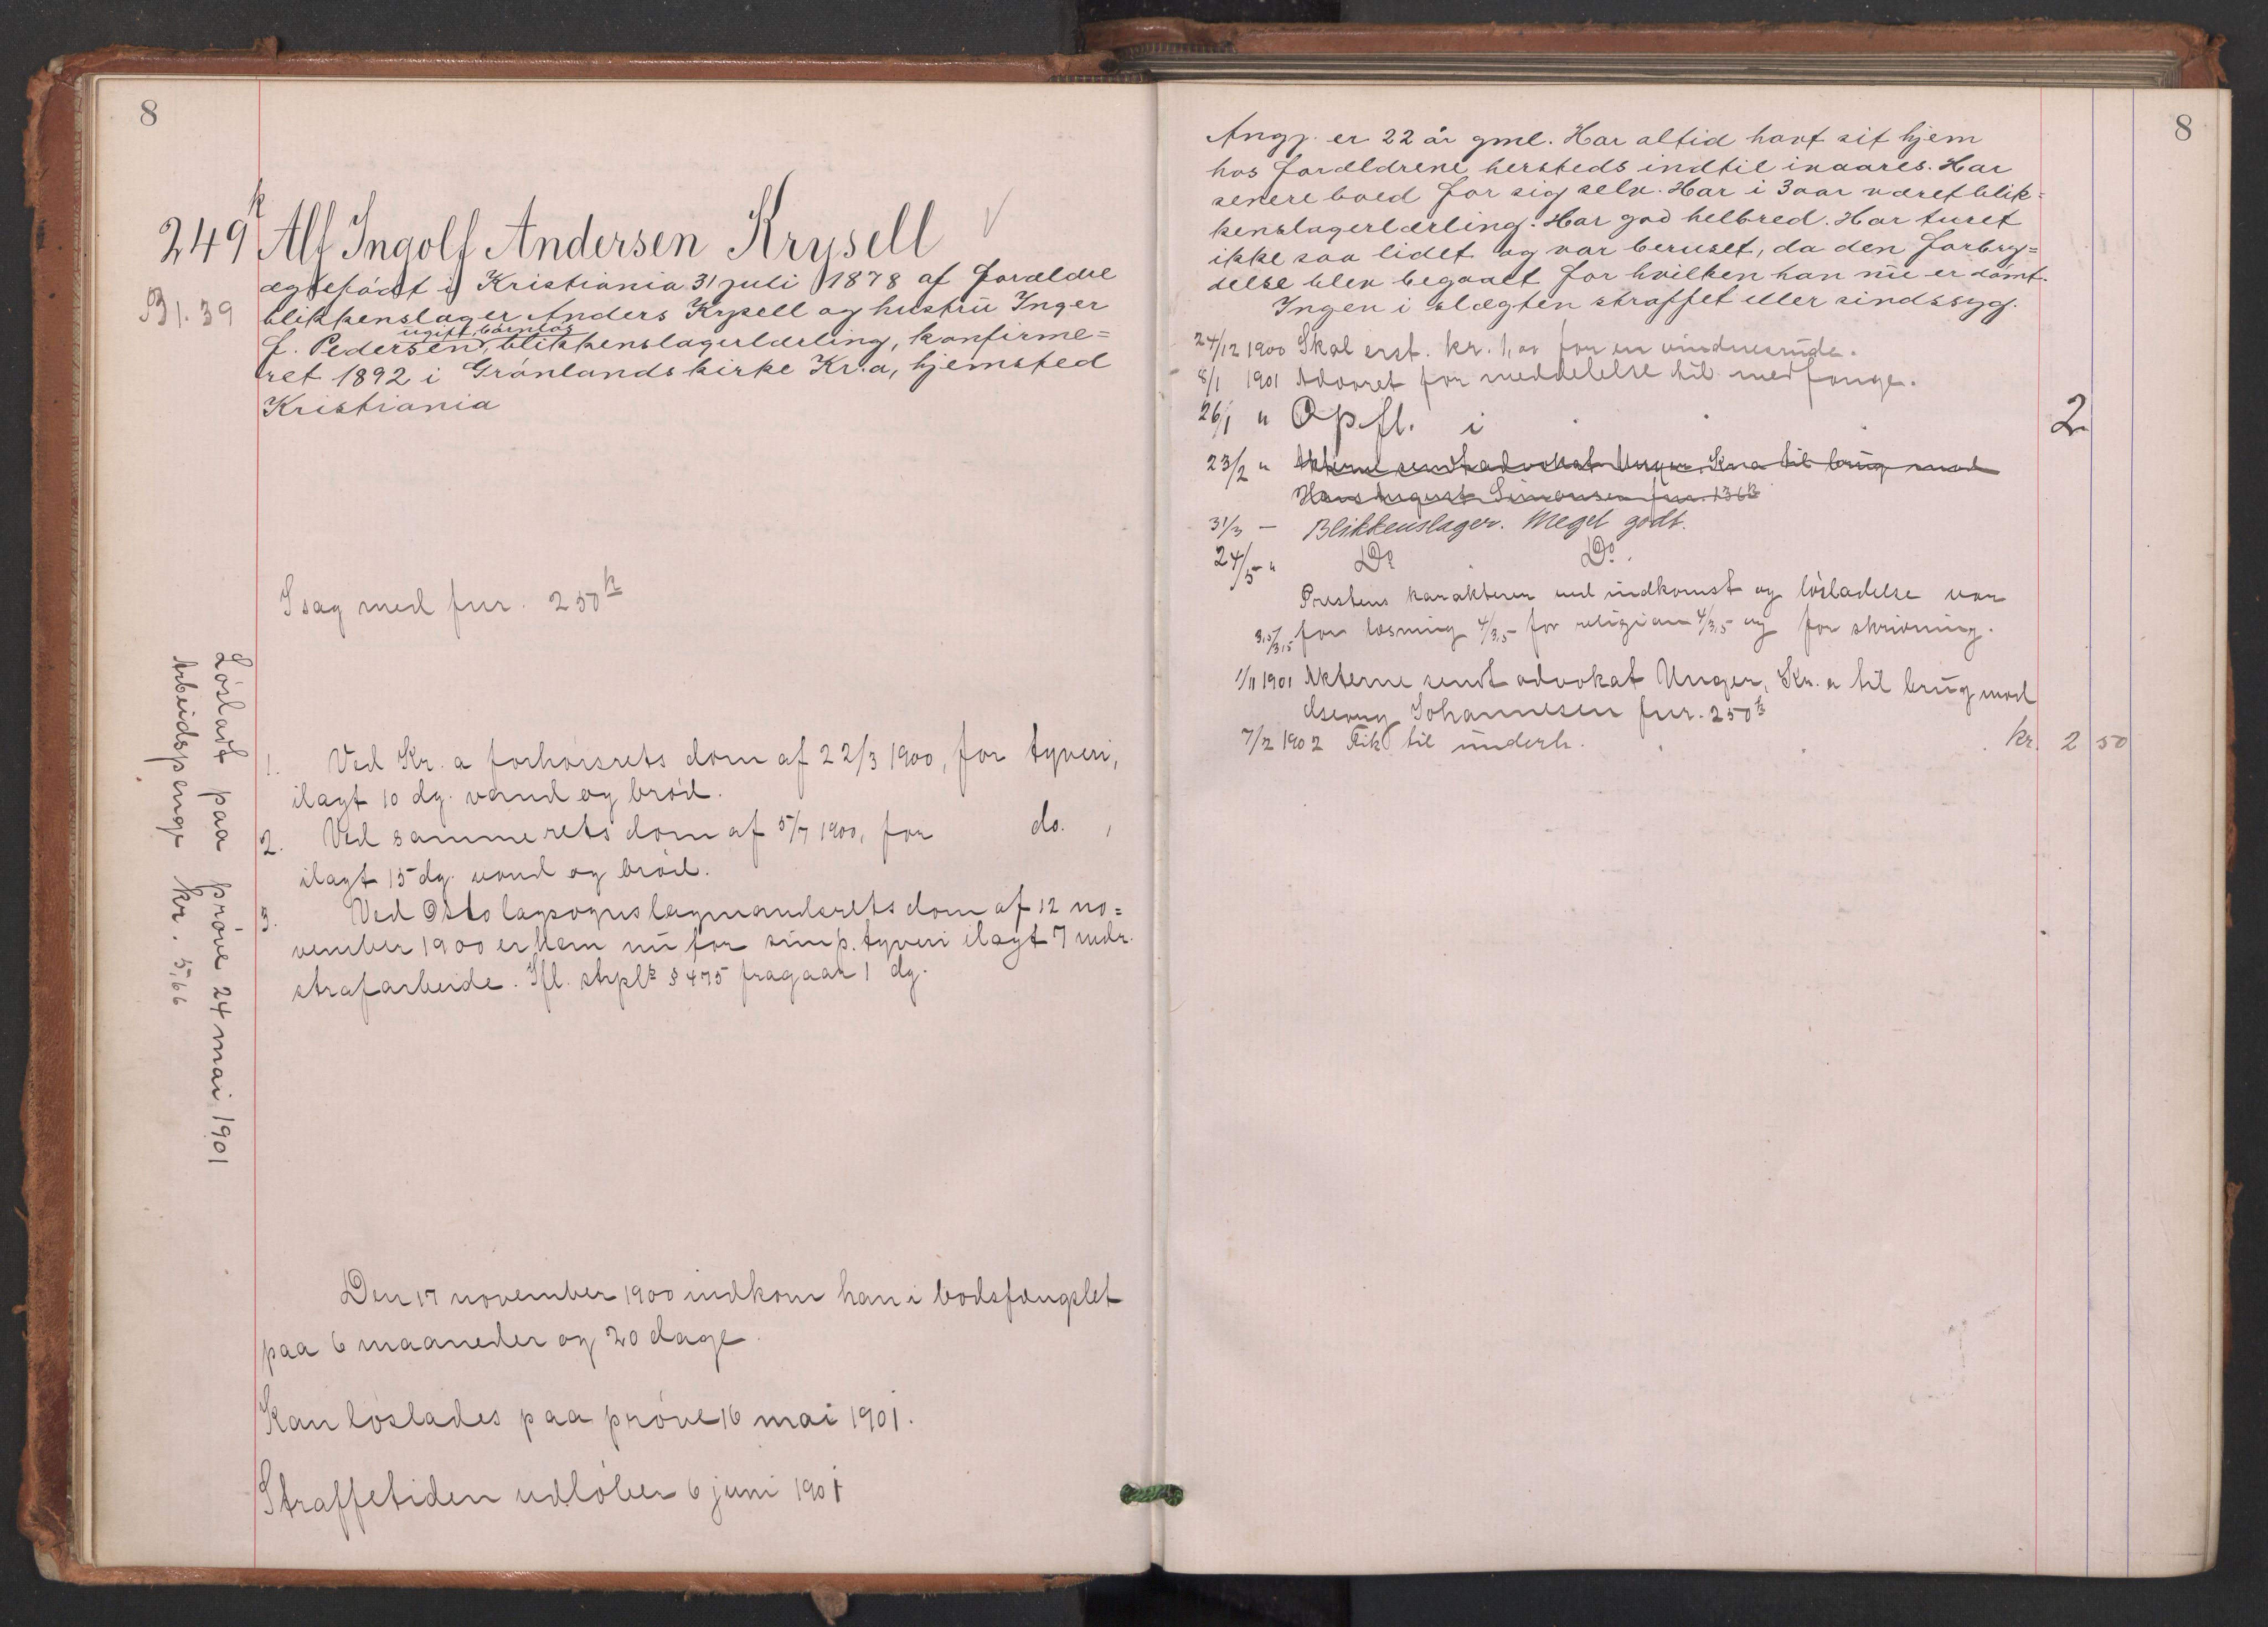 8
249k Alf Ingolf Andersen Krysell
ægtefødt i Kristiania 31 juli 1878 af forældre
B1. 39
blikkenslager Anders Krysell og hustru Inger
ugift, barnløs
f. Pedersen, blikkenslagerlærling, konfirme=
ret 1892 i Grønlands kirke Kr.a, hjemsted
Kristiania
I sag med fnr. 250k
1. Ved Kr. a forhørsrets dom af 22/3 1900, for tyveri,
ilagt 10 dg. vand og brød.
2. Ved samme rets dom af 5/7 1900, for do.,
ilagt 15 dg. vand og brød.
3. Ved Oslo lagsogns lagmandsrets dom af 12 no=
vember 1900 er ham nu for simp. tyveri ilagt 7 mdr.
strafarbeide. Ifl. strpl. § 475 fragaar 1 dg.
Den 17 november 1900 indkom han i bodsfængslet
paa 6 maaneder og 20 dage.
Kan løslades paa prøve 16 mai 1901.
Straffetiden udløber 6 juni 1901
Løsladt paa prøve 24 mai 1901
Arbeidspenge kr. 5,66
8
Angj. er 22 år gml. Har altid havt sit hjem
hos forældrene hersteds indtil ivaares. Har
senere boed for sig selv. Har i 3 aar været blik=
kenslagerlærling. Har god helbred. Har turet
ikke saa lidet og var beruset, da den forbry=
delse blev begaaet for hvilken han nu er dømt.
Ingen i slægten straffet eller sindssyg.
24/12 1900 Skal erst. kr. 1,00 for en vinduesrude.
8/1 1901 Advaret for meddelelse til medfange.
26/1 " Opfl. i 2
23/2 " Akterne sendt advokat Unger, Kr.a til brug mod
Hans August Simonsen fnr. 136k
31/3 — Blikkenslager. Meget godt.
24/5 " Do Do.
Prestens karakterer ved indkomst og løsladelse var
for læsning 4/3,5 for religion 4/3,5 og for skrivning.
3,5/3,5
1/11 1901 Akterne sendt advokat Unger, Kr. a til brug mod
Johannesen fnr. 250k
7/2 1902 Fik til underh. kr. 2 50